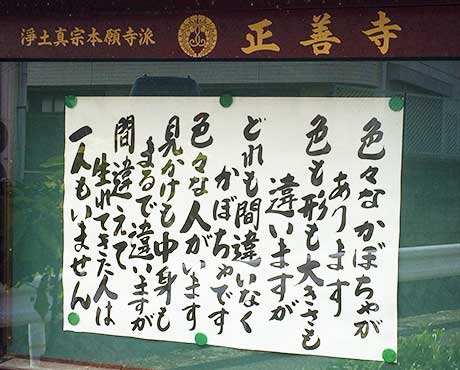 浄土真宗本願寺派
正善寺
色々なかぼちゃが
あります
色も形も大きさも
違いますが
どれも間違いなく
かぼちゃです
色々な人がいます
見かけも中身も
まるで違いますが
間違えて
生れてきた人は
一人もいません